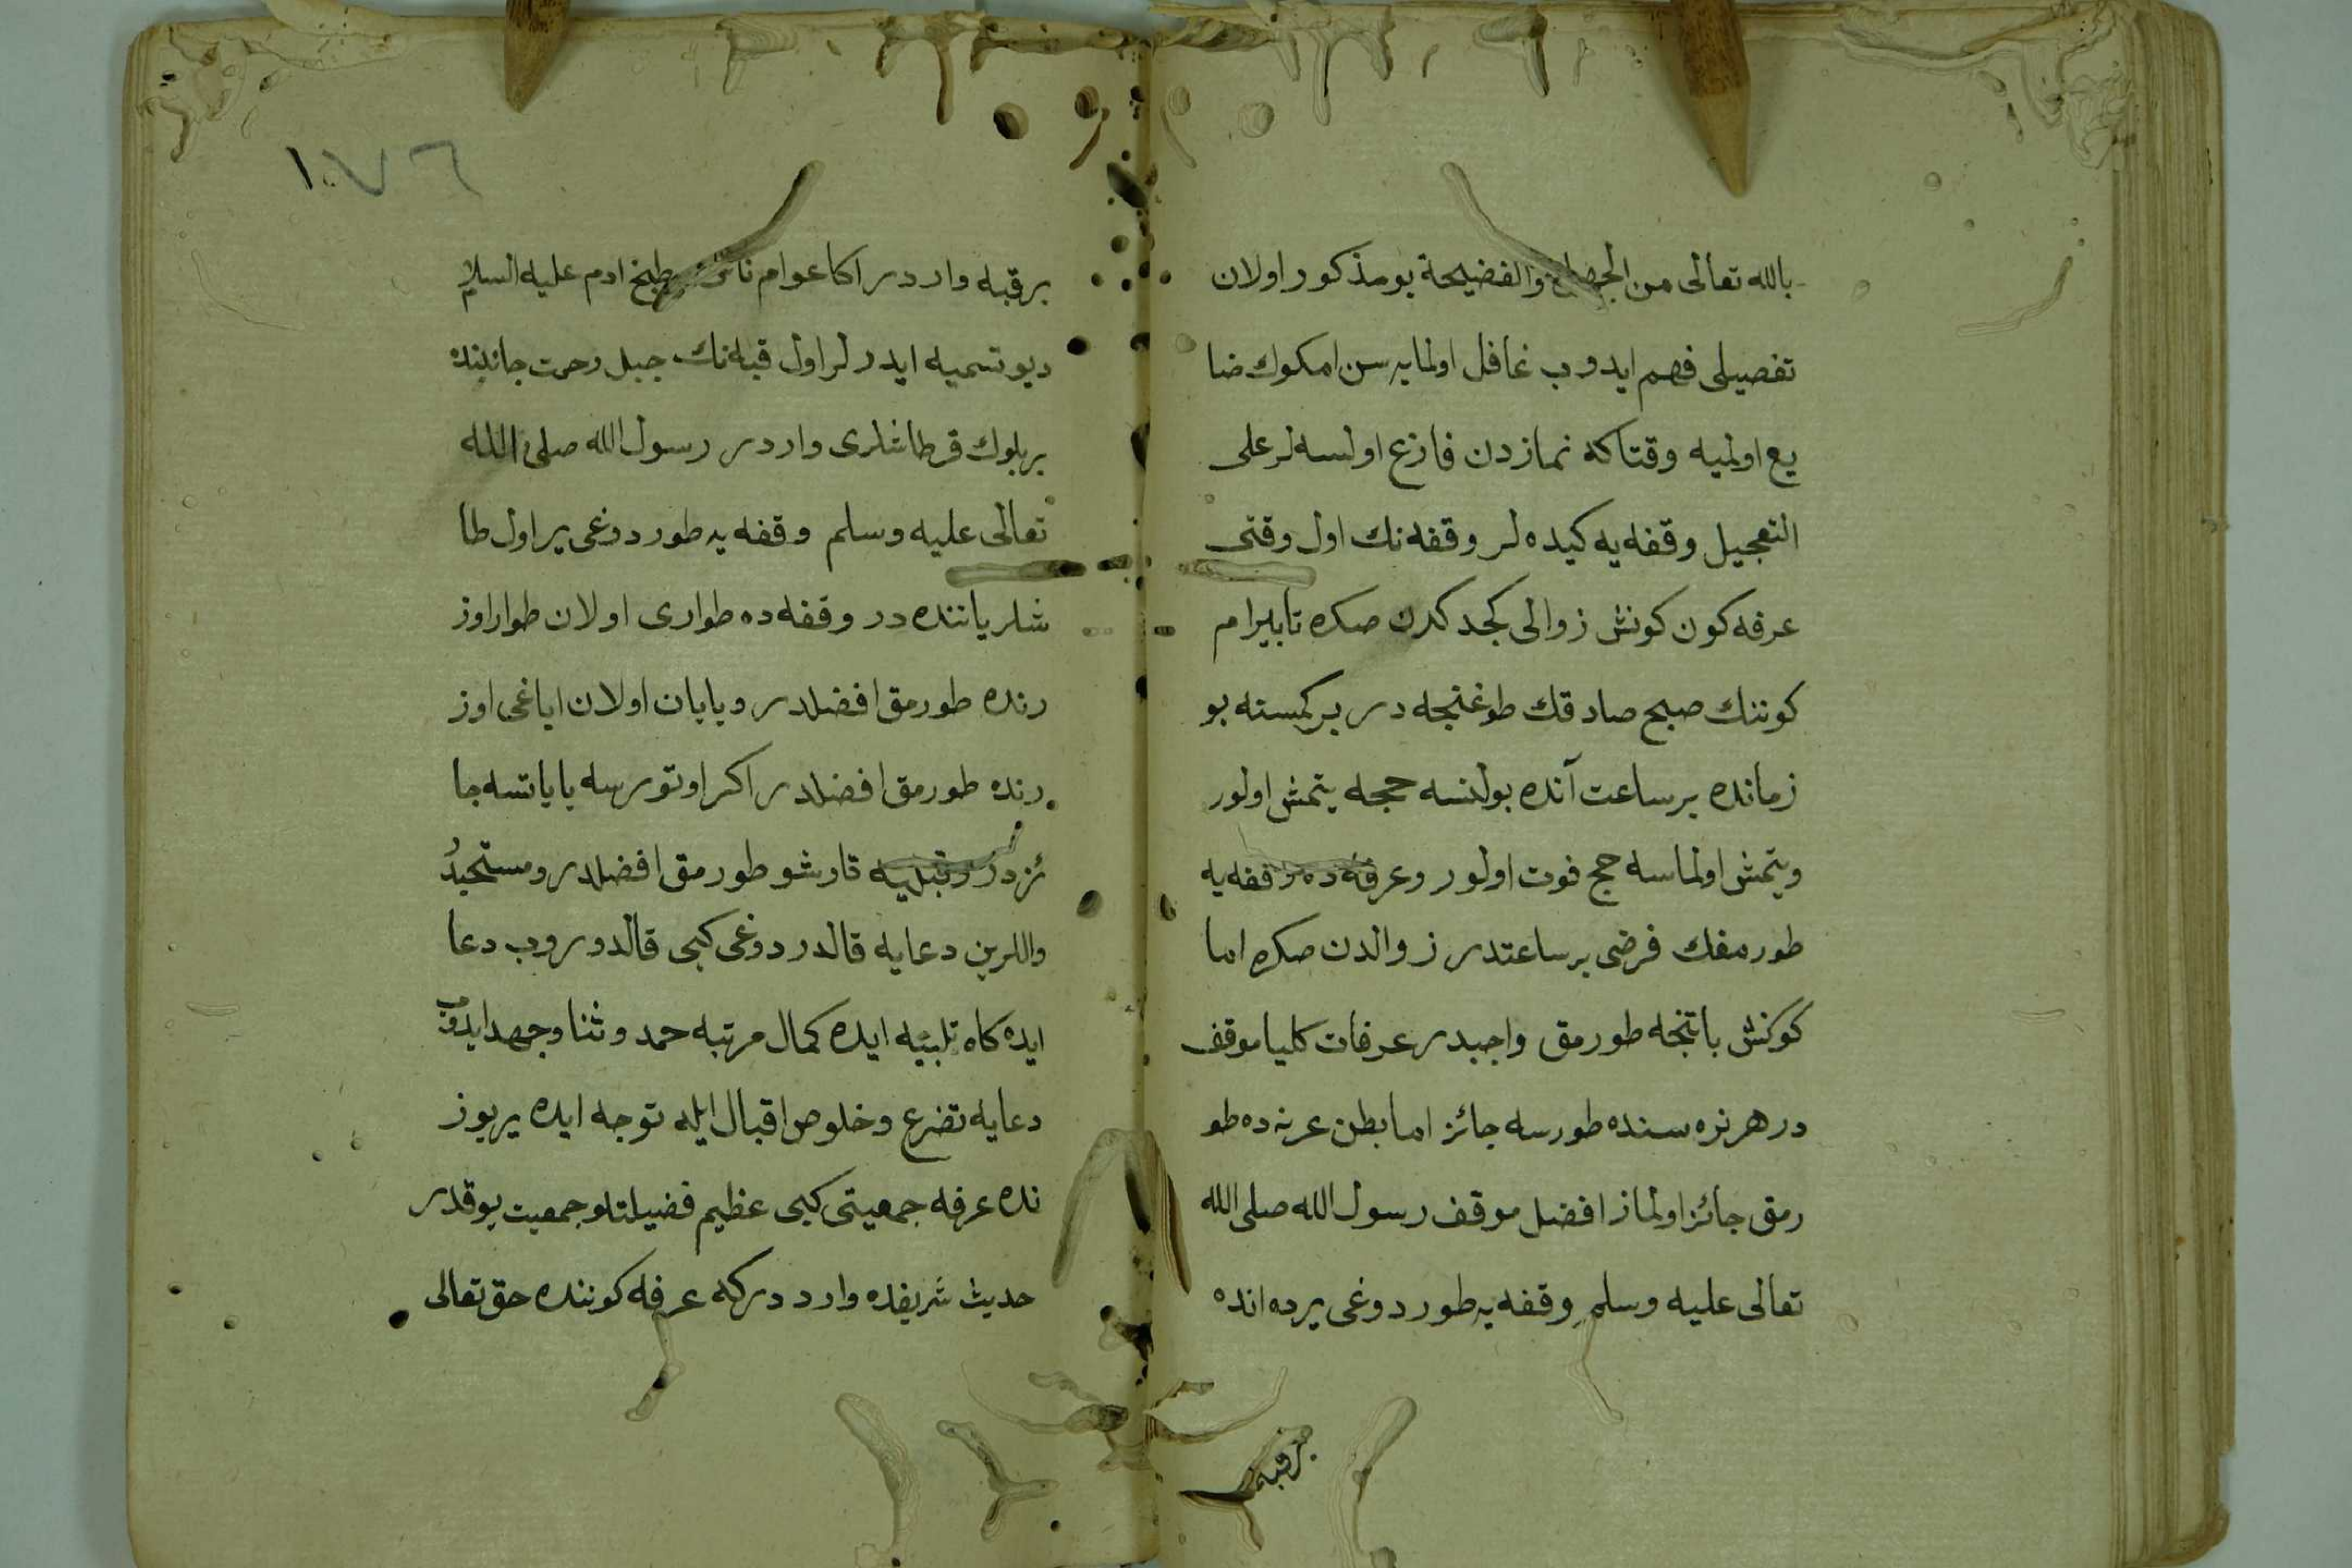 بالله تعالى من الجهل والفضيحة بو مذكور اولان
تفصيلى فهم ايدوب غافل اولمايه سن امكوك ضا
يع اولميه وقتاكه نمازدن فارغ اولسه لر على
التعجيل وقفه يه كيده لر وقفه نك اول وقتى
عرفه كون كونش زوالى كجدكدن صكره تا بيرام
كوننك صبح صادقك طوغنجه در بر كمسنه بو
زمانده بر ساعت آنده بولنسه حجه يتمش اولور
ويتمش اولماسه حج فوت اولور وعرفه ده وقفه يه
طورمقك فرضى بر ساعتدر زوالدن صكره اما
كونش باتنجه طورمق واجبدر عرفات كليا موقف
در هر نره سنده طورسه جائز اما بطن عرنه ده طو
رمق جائز اولماز افضل موقف رسول الله صلى الله
تعالى عليه وسلم وقفه يه طوردوغى يرده انده
بر قبه
١٧٦
بر قبه واردر اكا عوام ناس مطبخ ادم عليه السلام
ديو تسميه ايدرلر اول قبه نك جبل رحمت جانبنده
بر بلوك قره طاشلرى واردر رسول الله صلى الله
تعالى عليه وسلم وقفه يه طوردوغى ير اول طا
شلر ياننده در وقفه ده طوارى اولان طوار اوز
رنده طورمق افضلدر ويايان اولان اياغى اوز
رنده طورمق افضلدر اكر اوتورسه يا ياتسه جا
ئزدر وقبليه قارشو طورمق افضلدر ومستحبدر
واللرين دعايه قالدردوغى كبى قالدوروب دعا
ايده كاه تلبيه ايده كمال مرتبه حمد وثنا وجهد ايدوب
دعايه تضرع وخلوص اقبال ايله توجه ايده ير يوز
نده عرفه جمعيتى كبى عظيم فضيلتلو جمعيت يوقدر
حديث شريفده وارد در كه عرفه كوننده حق تعالى